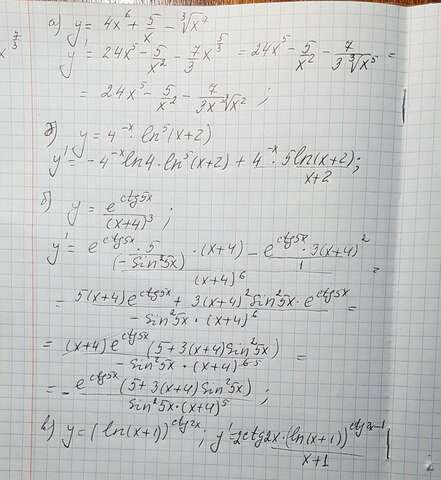 x^{7/3}
а) y = 4x^6 + 5/x - ∛x^7
y' = 24x^5 - 5/x^2 - 7/3 x^{5/3} = 24x^5 - 5/x^2 - 7/(3 ∛x^5) =
= 24x^5 - 5/x^2 - 7/(3x ∛x^2) ;
б) y = 4^{-x} · ln^5(x+2)
y' = -4^{-x} ln4 · ln^5(x+2) + 4^{-x} · 5ln(x+2)/(x+2) ;
б) y = e^{ctg5x}/(x+4)^3 ;
y' = (e^{ctg5x} · 5/(-sin^2 5x) · (x+4) - e^{ctg5x} · 3(x+4)^2/1)/(x+4)^6 =
= (5(x+4)e^{ctg5x} + 3(x+4)^2 sin^2 5x · e^{ctg5x})/(-sin^2 5x · (x+4)^6) =
= (x+4)e^{ctg5x}(5+3(x+4)sin^2 5x)/(-sin^2 5x · (x+4)^{6-5}) =
= - e^{ctg5x}(5+3(x+4)sin^2 5x)/(sin^2 5x · (x+4)^5) ;
в) y = (ln(x+1))^{ctg2x} ; y' = 2ctg2x · (ln(x+1))^{ctg2x-1}/(x+1)